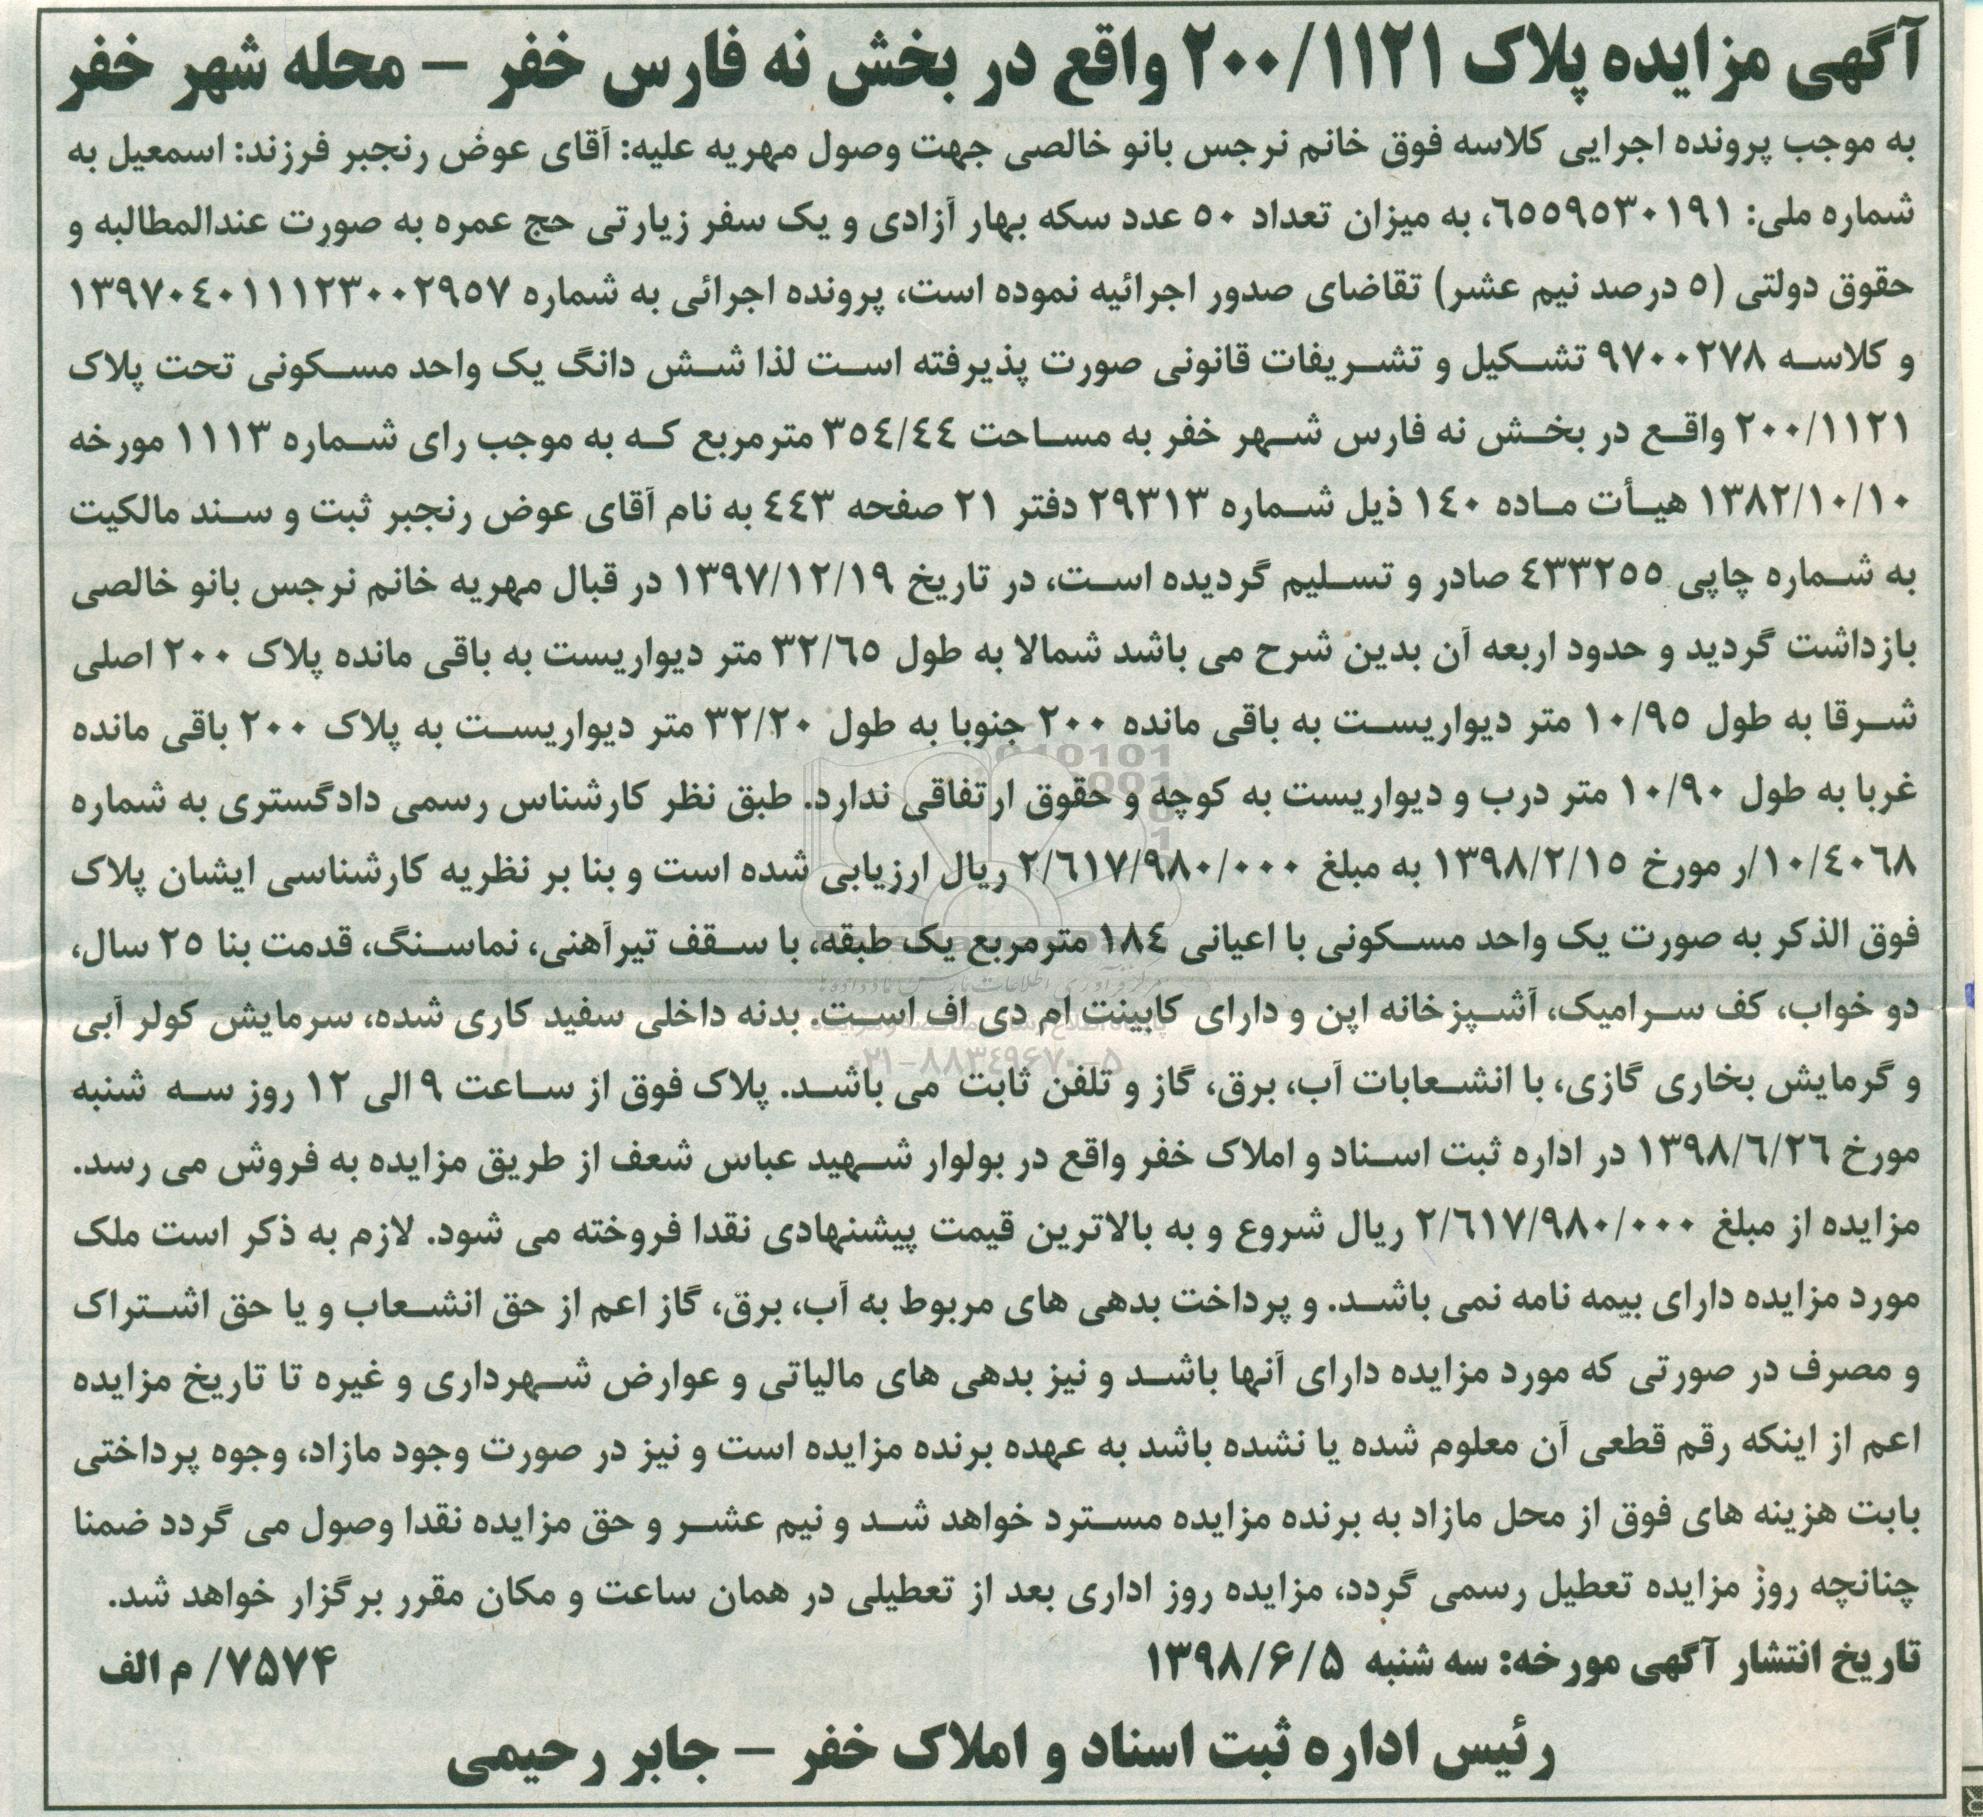 آگهی مزایده پلاک ۲۰۰/۱۱۲۱ واقع در بخش نه فارس خفر – محله شهر خفر
به موجب پرونده اجرایی کلاسه فوق خانم نرجس بانو خالصی جهت وصول مهریه علیه: آقای عوض رنجبر فرزند: اسمعیل به
شماره ملی: ۶۵۵۹۵۳۰۱۹۱، به میزان تعداد ۵۰ عدد سکه بهار آزادی و یک سفر زیارتی حج عمره به صورت عندالمطالبه و
حقوق دولتی (۵ درصد نیم عشر) تقاضای صدور اجرائیه نموده است، پرونده اجرائی به شماره ۱۳۹۷۰۴۰۱۱۱۲۳۰۰۲۹۵۷
و کلاسه ۹۷۰۰۲۷۸ تشکیل و تشریفات قانونی صورت پذیرفته است لذا شش دانگ یک واحد مسکونی تحت پلاک
۲۰۰/۱۱۲۱ واقع در بخش نه فارس شهر خفر به مساحت ۳۵۴/۴۴ مترمربع که به موجب رای شماره ۱۱۱۳ مورخه
۱۳۸۲/۱۰/۱۰ هیأت ماده ۱۴۰ ذیل شماره ۲۹۳۱۳ دفتر ۲۱ صفحه ۴۴۳ به نام آقای عوض رنجبر ثبت و سند مالکیت
به شماره چاپی ۴۳۳۲۵۵ صادر و تسلیم گردیده است، در تاریخ ۱۳۹۷/۱۲/۱۹ در قبال مهریه خانم نرجس بانو خالصی
بازداشت گردید و حدود اربعه آن بدین شرح می باشد شمالا به طول ۳۲/۶۵ متر دیواریست به باقی مانده پلاک ۲۰۰ اصلی
شرقا به طول ۱۰/۹۵ متر دیواریست به باقی مانده ۲۰۰ جنوبا به طول ۳۲/۲۰ متر دیواریست به پلاک ۲۰۰ باقی مانده
غربا به طول ۱۰/۹۰ متر درب و دیواریست به کوچه و حقوق ارتفاقی ندارد. طبق نظر کارشناس رسمی دادگستری به شماره
۱۰/۴۰۶۸/ر مورخ ۱۳۹۸/۲/۱۵ به مبلغ ۲/۶۱۷/۹۸۰/۰۰۰ ریال ارزیابی شده است و بنا بر نظریه کارشناسی ایشان پلاک
فوق الذکر به صورت یک واحد مسکونی با اعیانی ۱۸۴ مترمربع یک طبقه، با سقف تیرآهنی، نماسنگ، قدمت بنا ۲۵ سال،
دو خواب، کف سرامیک، آشپزخانه اپن و دارای کابینت ام دی اف است. بدنه داخلی سفید کاری شده، سرمایش کولر آبی
و گرمایش بخاری گازی، با انشعابات آب، برق، گاز و تلفن ثابت می باشد. پلاک فوق از ساعت ۹ الی ۱۲ روز سه شنبه
مورخ ۱۳۹۸/۶/۲۶ در اداره ثبت اسناد و املاک خفر واقع در بولوار شهید عباس شعف از طریق مزایده به فروش می رسد.
مزایده از مبلغ ۲/۶۱۷/۹۸۰/۰۰۰ ریال شروع و به بالاترین قیمت پیشنهادی نقدا فروخته می شود. لازم به ذکر است ملک
مورد مزایده دارای بیمه نامه نمی باشد. و پرداخت بدهی های مربوط به آب، برق، گاز اعم از حق انشعاب و یا حق اشتراک
و مصرف در صورتی که مورد مزایده دارای آنها باشد و نیز بدهی های مالیاتی و عوارض شهرداری و غیره تا تاریخ مزایده
اعم از اینکه رقم قطعی آن معلوم شده یا نشده باشد به عهده برنده مزایده است و نیز در صورت وجود مازاد، وجوه پرداختی
بابت هزینه های فوق از محل مازاد به برنده مزایده مسترد خواهد شد و نیم عشر و حق مزایده نقدا وصول می گردد ضمنا
چنانچه روز مزایده تعطیل رسمی گردد، مزایده روز اداری بعد از تعطیلی در همان ساعت و مکان مقرر برگزار خواهد شد.
تاریخ انتشار آگهی مورخه: سه شنبه ۱۳۹۸/۶/۵
۷۵۷۴/ م الف
رئیس اداره ثبت اسناد و املاک خفر – جابر رحیمی
۰۲۱-۸۸۳۴۹۶۷۰-۵